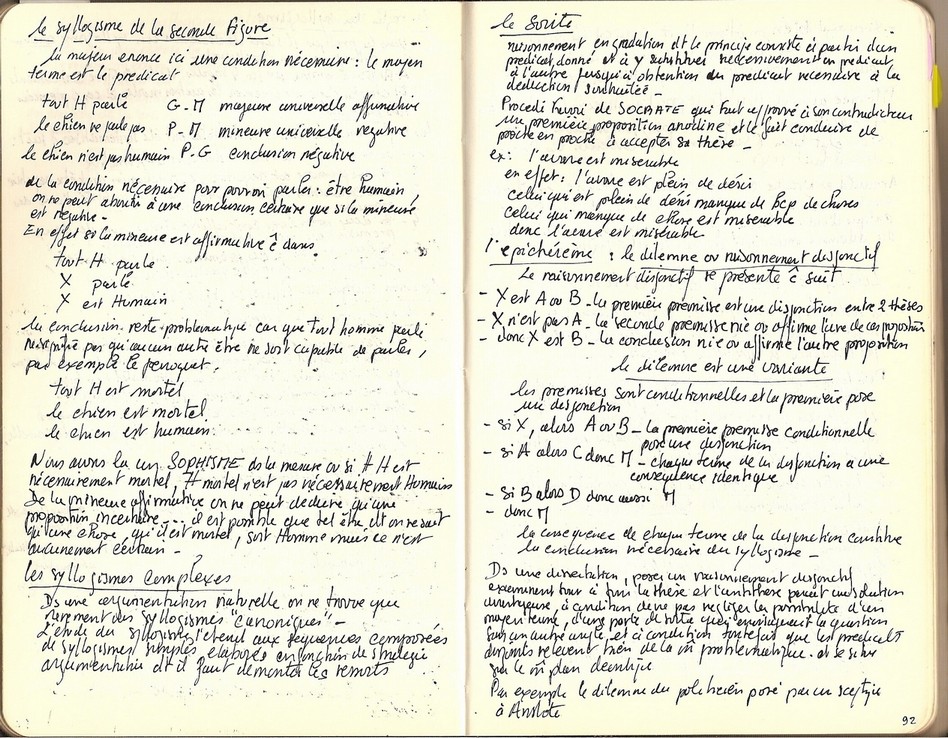 le syllogisme de la seconde figure
la majeur enonce ici une condition nécessaire : le moyen
terme est le predicat
tout H parle G.M majeure universelle affirmative
le chien ne parle pas P.M mineure universelle negative
le chien n'est pas humain P.G conclusion négative
de la condition nécessaire pour pouvoir parler : être humain
on ne peut aboutir à une conclusion certaine que si la mineure
est negative -
En effet si la mineure est affirmative ê dans
tout H parle
X parle
X est Humain
la conclusion reste problematique car que tout homme parle
pas qu'aucun autre être ne soit capable de parler,
par exemple le perroquet.
tout H est mortel
le chien est mortel
le chien est humain.
Nous avons là un SOPHISME ds la mesure ou si H est
nécessairement mortel, mortel n'est pas nécessairement Humain
De la mineure affirmative on ne peut deduire qu'une
proposition incertaine ... il est possible que tel être dt on ne sait
qu'une chose, qu'il est mortel, soit Homme mais ce n'est
aucunement certain -
les syllogismes complexes
Ds une argumentation naturelle on ne trouve que
rarement des syllogismes "canoniques" -
L'étude du syllogisme s'etend aux séquences composées
de syllogismes simples elaborés en fonction de strategie
argumentative dt il faut demonter les ressorts
le Sorite
raisonnement en gradation dt le principe consiste à partir d'un
predicat donné et à y substituer successivement un predicat
à l'autre jusqu'à obtention du predicat necessaire à la
deduction souhaitée -
Procédé favori de SOCRATE qui fait à son contradicteur
une première proposition anodine et le fait conduire de
proche en proche à accepter sa thèse -
ex : l'avare est miserable
en effet : l'avare est plein de désir
celui qui est plein de désir manque de bcp de choses
celui qui manque de chose est miserable
donc l'avare est misérable
l'epichérème : le dilemme ou raisonnement disjonctif
Le raisonnement disjonctif se présente ê suit
- X est A ou B - la première premisse est une disjonction entre 2 thèses
- X n'est pas A - la seconde premisse nie ou affirme l'une de ces proposition
- donc X est B - la conclusion nie ou affirme l'autre proposition
le dilemme est une variante
les premisses sont conditionnelles et la première pose
une disjonction
- si X, alors A ou B - la première premisse conditionnelle
pose une disjonction
- si A alors C donc M - chaque terme de la disjonction a une
consequence identique
- Si B alors D donc aussi M
- donc M
la consequence de chaque terme de la disjonction constitue
la conclusion nécessaire du syllogisme -
Ds une dissertation, poser un raisonnement disjonctif
examinant tour à tour la thèse et l'antithèse peut une solution
avantageuse, à condition de ne pas negliger la possibilité d'un
moyen terme, d'une porte de sortie qui la question
sous un autre angle, et à condition toutefois que les predicats
disjoints relevent bien de la m problematique et se situe
sur le m plan
Par exemple le dilemme du politicien posé par un sceptique
à Aristote
92